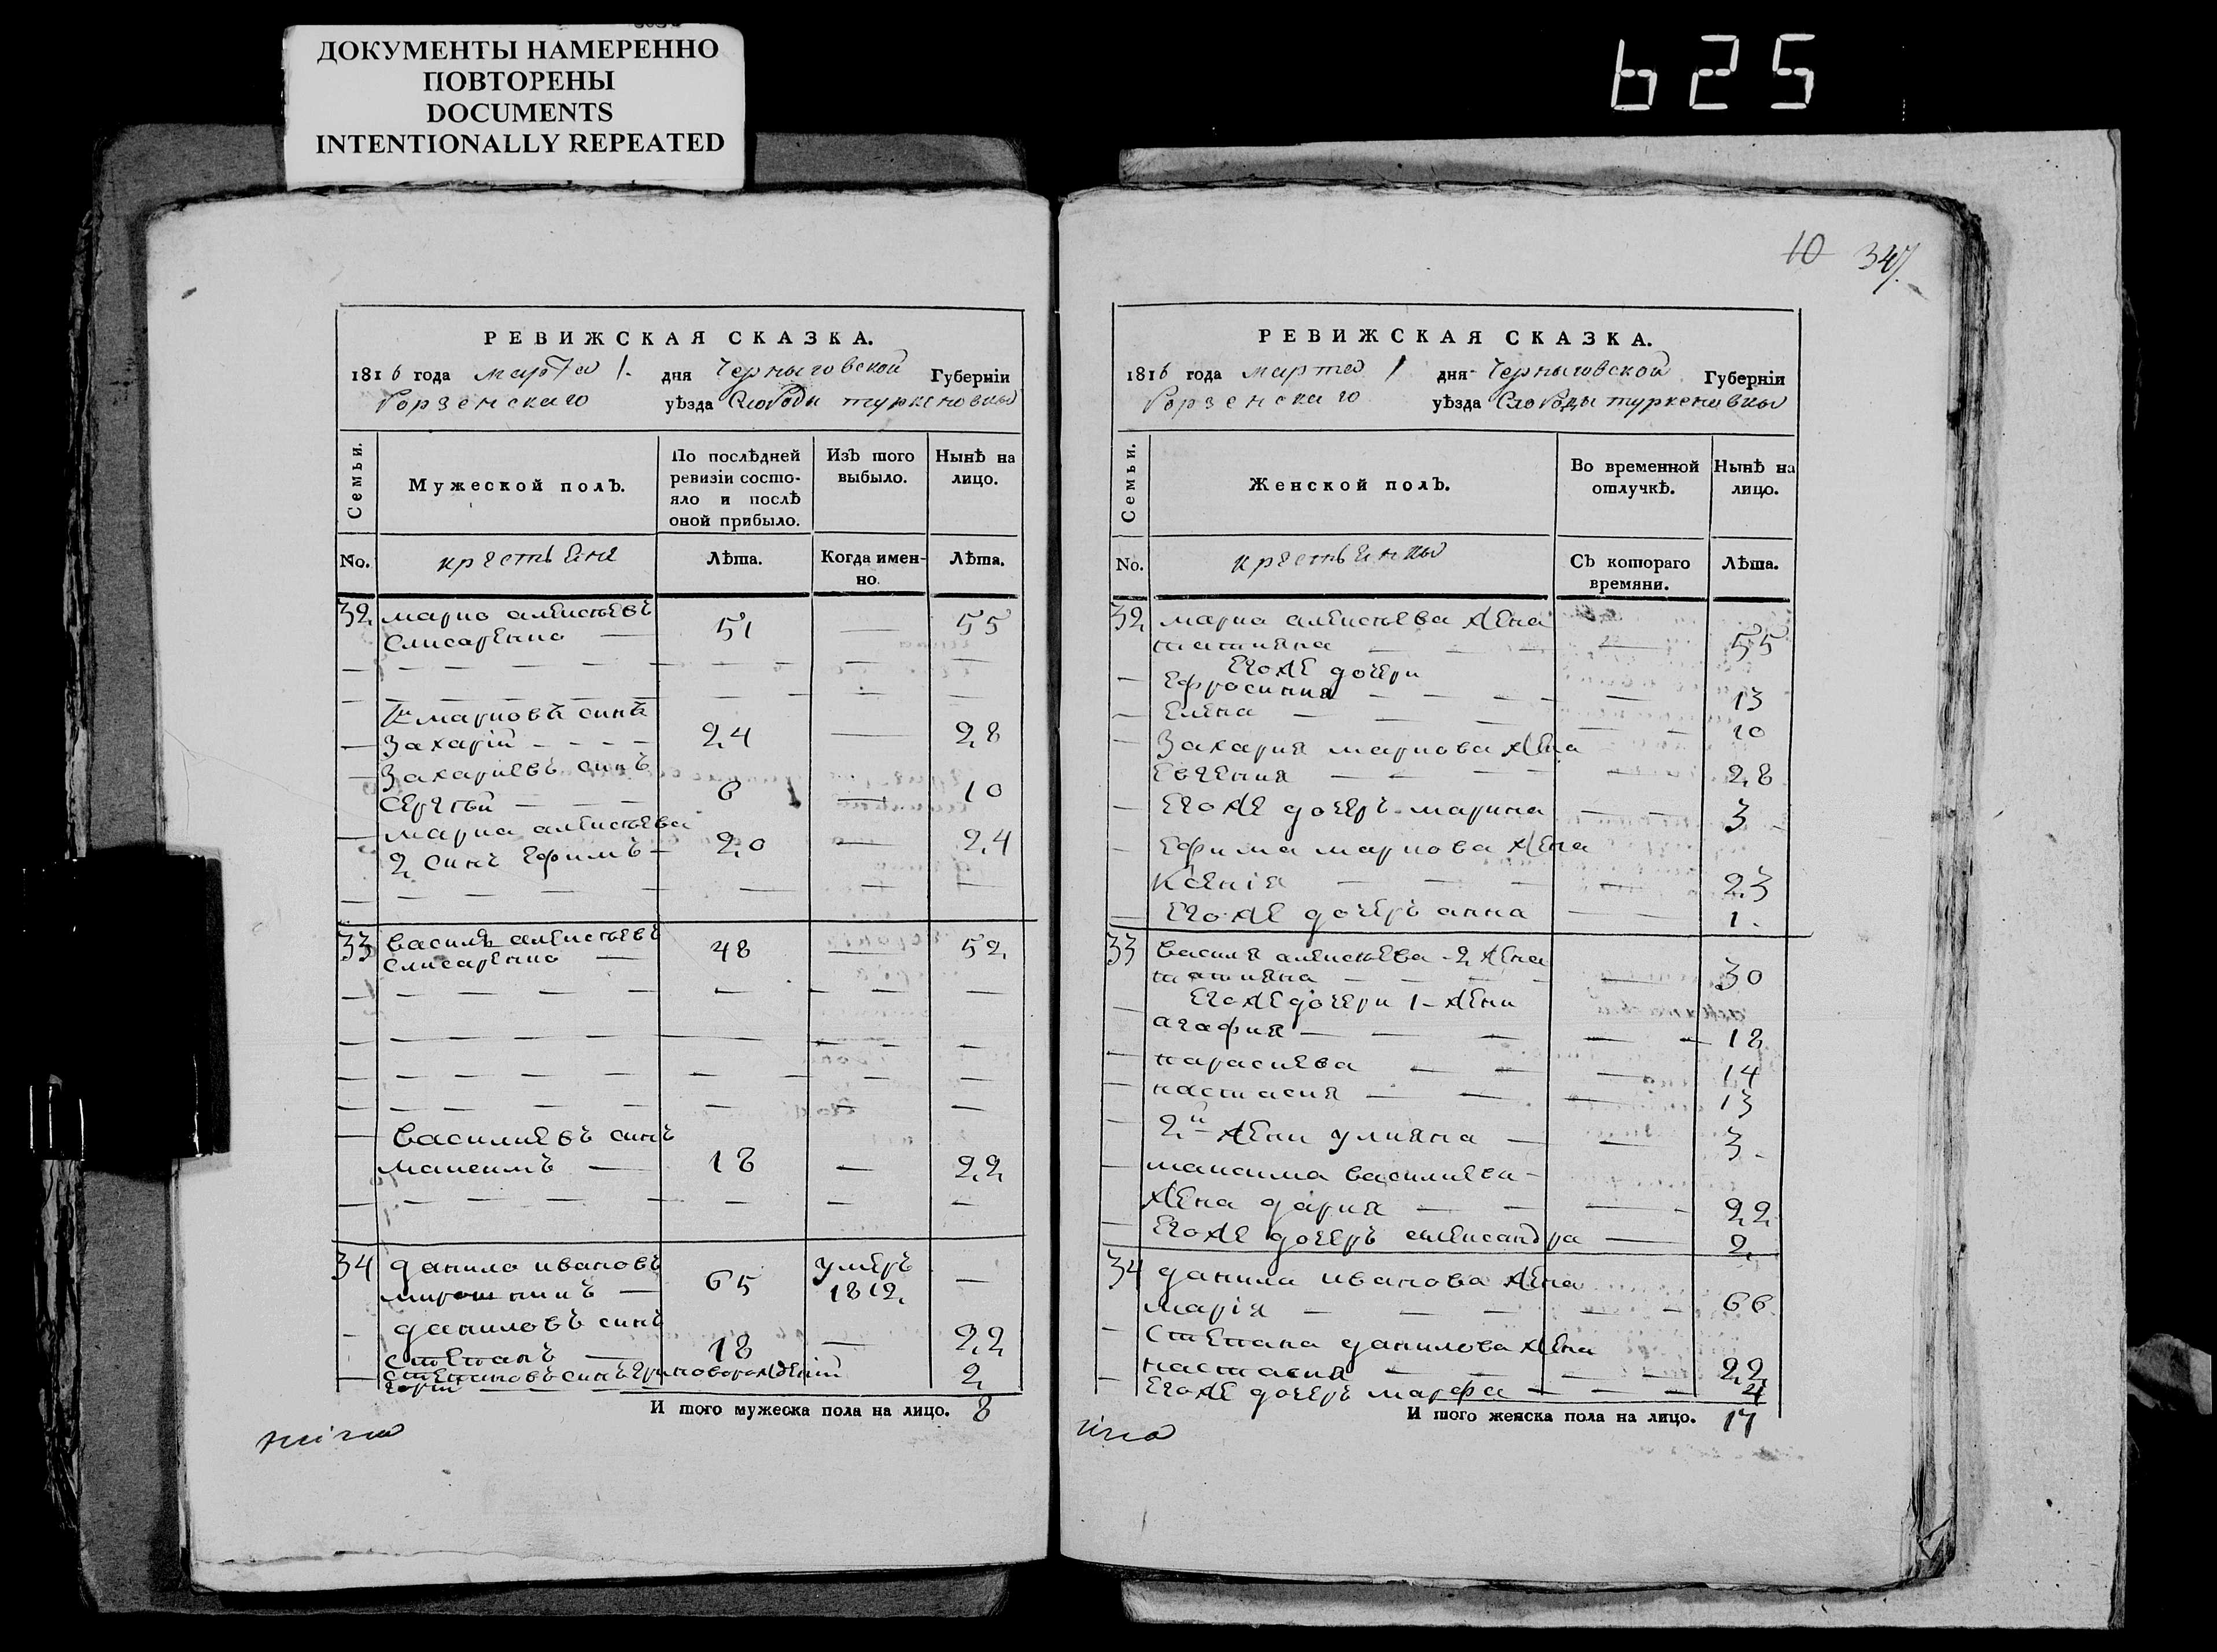 ДОКУМЕНТЫ НАМЕРЕННО
ПОВТОРЕНЫ
DOCUMENTS
INTENTIONALLY REPEATED
625
РЕВИЖСКАЯ СКАЗКА.
1816 года марта 1. дня Черныговской Губерніи
Борзенскаго уѣзда Слободи туркеновки
Семьи.
Мужеской полъ.
По послѣдней ревизіи состояло и послѣ оной прибыло.
Изъ того выбыло.
Нынѣ на лицо.
No. крестьяне Лѣта. Когда именно. Лѣта.
32 марко алексѣевъ
слисаренко — 51 — 55
марковъ синъ
Захарій - - - - 24 — 28
Захариевъ синъ
сергѣй — — — 6 — 10
марка алексѣева
2 синъ ефимъ — 20 — 24
33 василь алексѣевъ
слисаренко — 48 — 52
василиевъ синъ
максимъ — 18 — 22
34 данило ивановъ умеръ
мирошникъ — 65 1812 —
даниловъ синъ
степанъ — 18 — 22
степановъ синъ гри новорожденій
горій — — — 2
И того мужеска пола на лицо. 8
10 347.
РЕВИЖСКАЯ СКАЗКА.
1816 года марта 1 дня Черныговской Губерніи
Борзенскаго уѣзда Слободы туркеновки
Семьи.
Женской полъ.
Во временной отлучкѣ.
Нынѣ на лицо.
No. крестьянки Съ котораго времяни. Лѣта.
32 марка алексѣева жена
татияна — 55
егоже дочери
Ефросиния — 13
Елена — 10
Захария маркова жена
Евгения — 28
егоже дочеръ марина — 3
Ефима маркова жена
Ксенія — 23
егоже дочеръ анна — 1.
33 василя алексѣева 2 жена
татияна — 30
егоже дочери 1 жени
агафия — 18
парасиева — 14
настасия — 13
2й жени улияна — 3
максима василиева
жена дария — 22
егоже дочеръ александра — 2
34 данила иванова жена
марія — 66
степана данилова жена
настасия — 22
егоже дочеръ марфа — 4
И того женска пола на лицо. 17